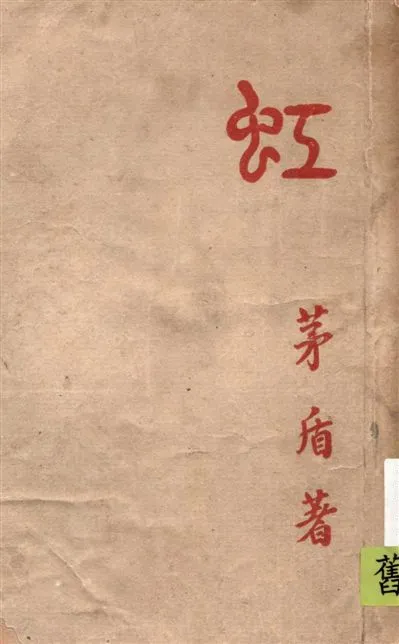 虹
茅盾著
舊